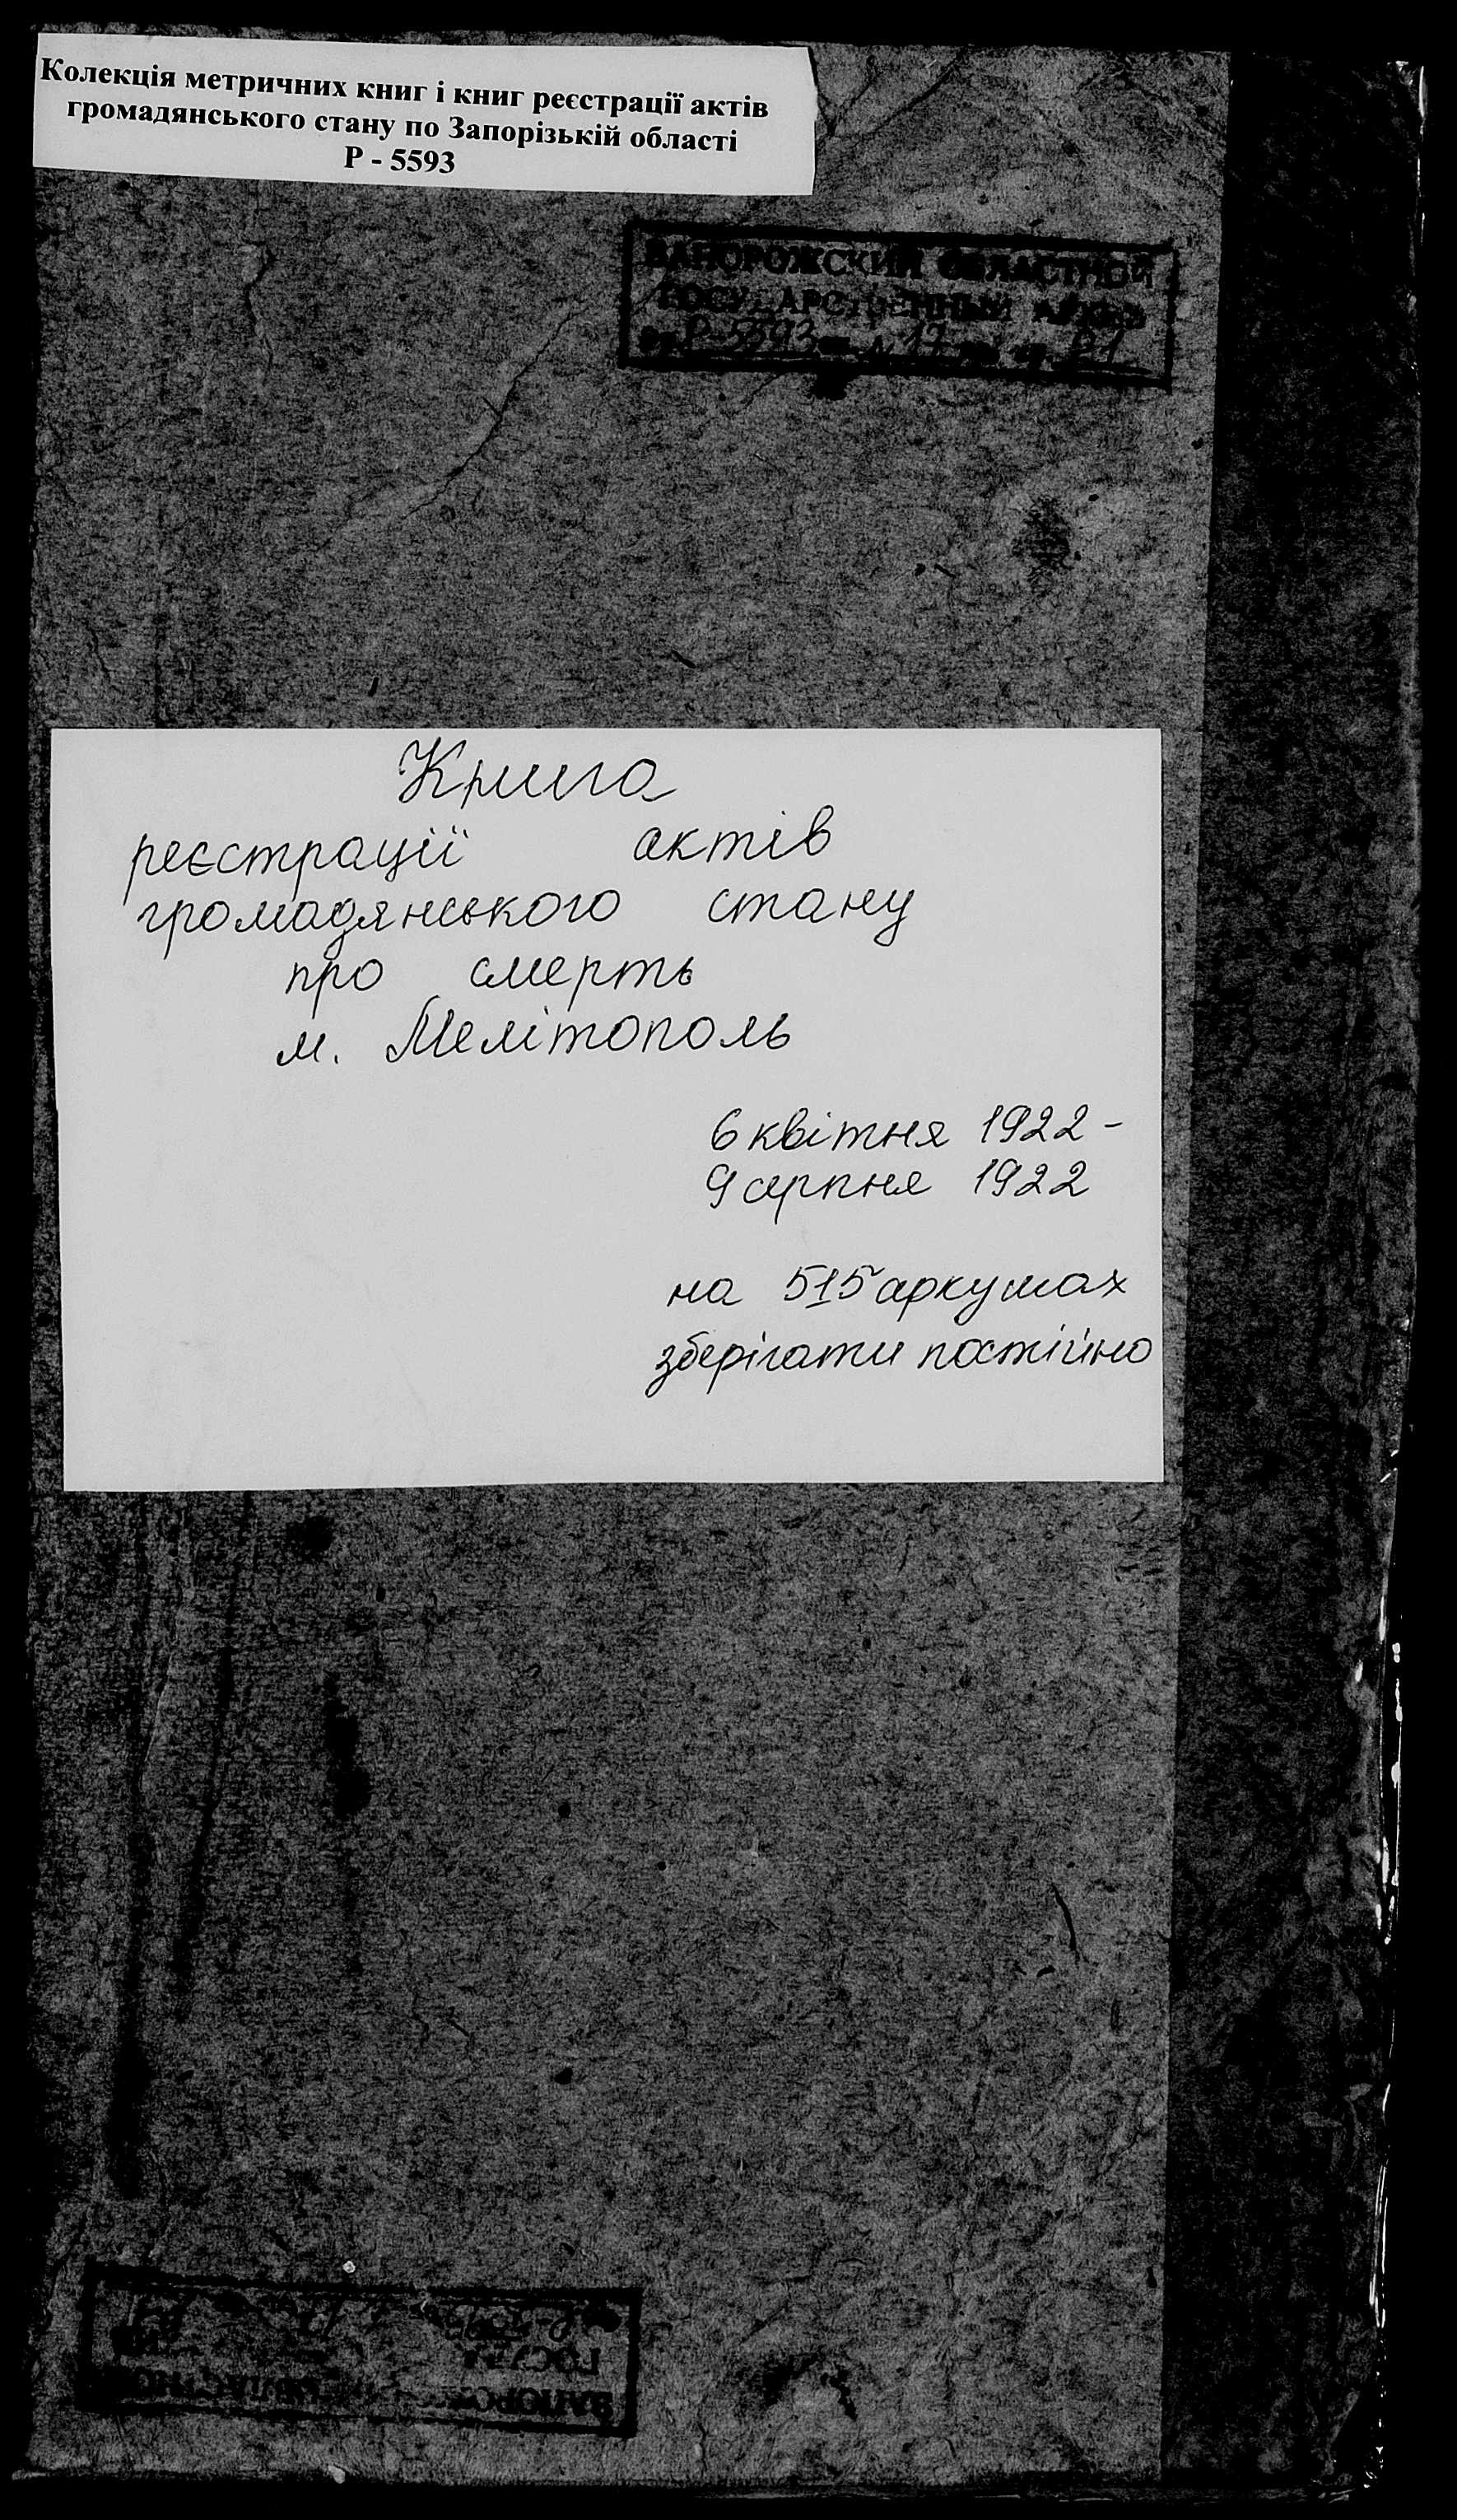 Колекція метричних книг і книг реєстрації актів
громадянського стану по Запорізькій області
Р - 5593
ЗАПОРОЖСКИЙ ОБЛАСТНОЙ
ГОСУДАРСТВЕННЫЙ АРХИВ
Р-5593 17
Книга
реєстрації актів
громадянського стану
про смерть
м. Мелітополь
6 квітня 1922 -
9 серпня 1922
на 515 аркушах
зберігати постійно